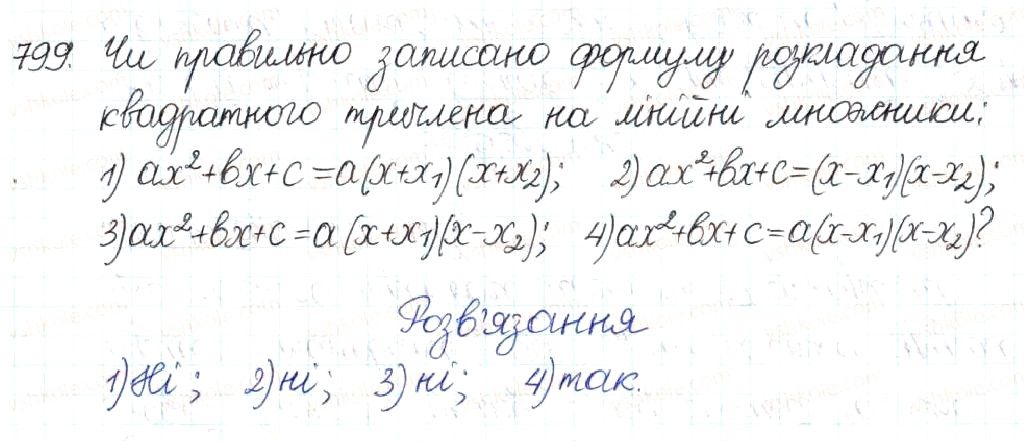 799. Чи правильно записано формулу розкладання
квадратного тричлена на лінійні множники:
1) ax²+bx+c=a(x+x₁)(x+x₂); 2) ax²+bx+c=(x-x₁)(x-x₂);
3) ax²+bx+c=a(x+x₁)(x-x₂); 4) ax²+bx+c=a(x-x₁)(x-x₂)?
Розв'язання
1) Ні; 2) ні; 3) ні; 4) так.